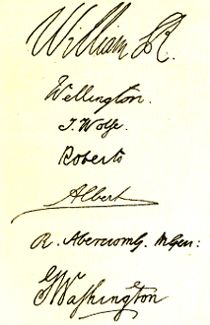 William R.
Wellington.
J. Wolfe.
Roberts
Albert
R. Abercomby. MGen:
GWashington